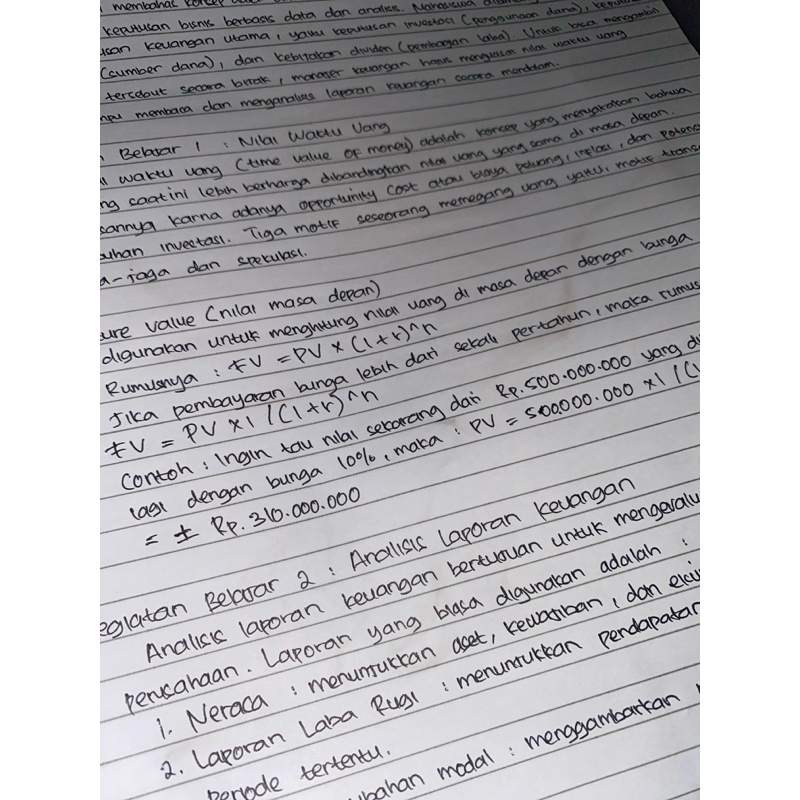 membahas konsep
keputusan bisnis berbasis data dan analisis. Mahasiswa
keuangan utama, yaitu keputusan investasi (penggunaan dana),
(sumber dana), dan kebijakan dividen (pembagian laba). Untuk bisa mengambil
tersebut secara bijak, manajer keuangan harus menguasai nilai waktu uang
membaca dan menganalisis laporan keuangan secara mendalam.
Belajar 1 : Nilai Waktu Uang
waktu uang (time value of money) adalah konsep yang menyatakan bahwa
saat ini lebih berharga dibandingkan nilai uang yang sama di masa depan.
karna adanya opportunity cost atau biaya peluang, inflasi, dan
investasi. Tiga motif seseorang memegang uang yaitu, motif
a-jaga dan spekulasi.
ure value (nilai masa depan)
digunakan untuk menghitung nilai uang di masa depan dengan bunga
Rumusnya : FV = PV x (1+r)^n
Jika pembayaran bunga lebih dari sekali pertahun, maka rumus
FV = PV x 1 /(1+r)^n
Contoh : Ingin tau nilai sekarang dari Rp.500.000.000 yang
lagi dengan bunga 10%, maka : PV = 500.000.000 x 1 / (1
= ± Rp. 310.000.000
egiatan Belajar 2 : Analisis Laporan Keuangan
Analisis laporan keuangan bertujuan untuk mengevalu
perusahaan. Laporan yang biasa digunakan adalah :
1. Neraca : menunjukkan aset, kewajiban, dan
2. Laporan Laba Rugi : menunjukkan pendapatan
periode tertentu.
ubahan modal : menggambarkan